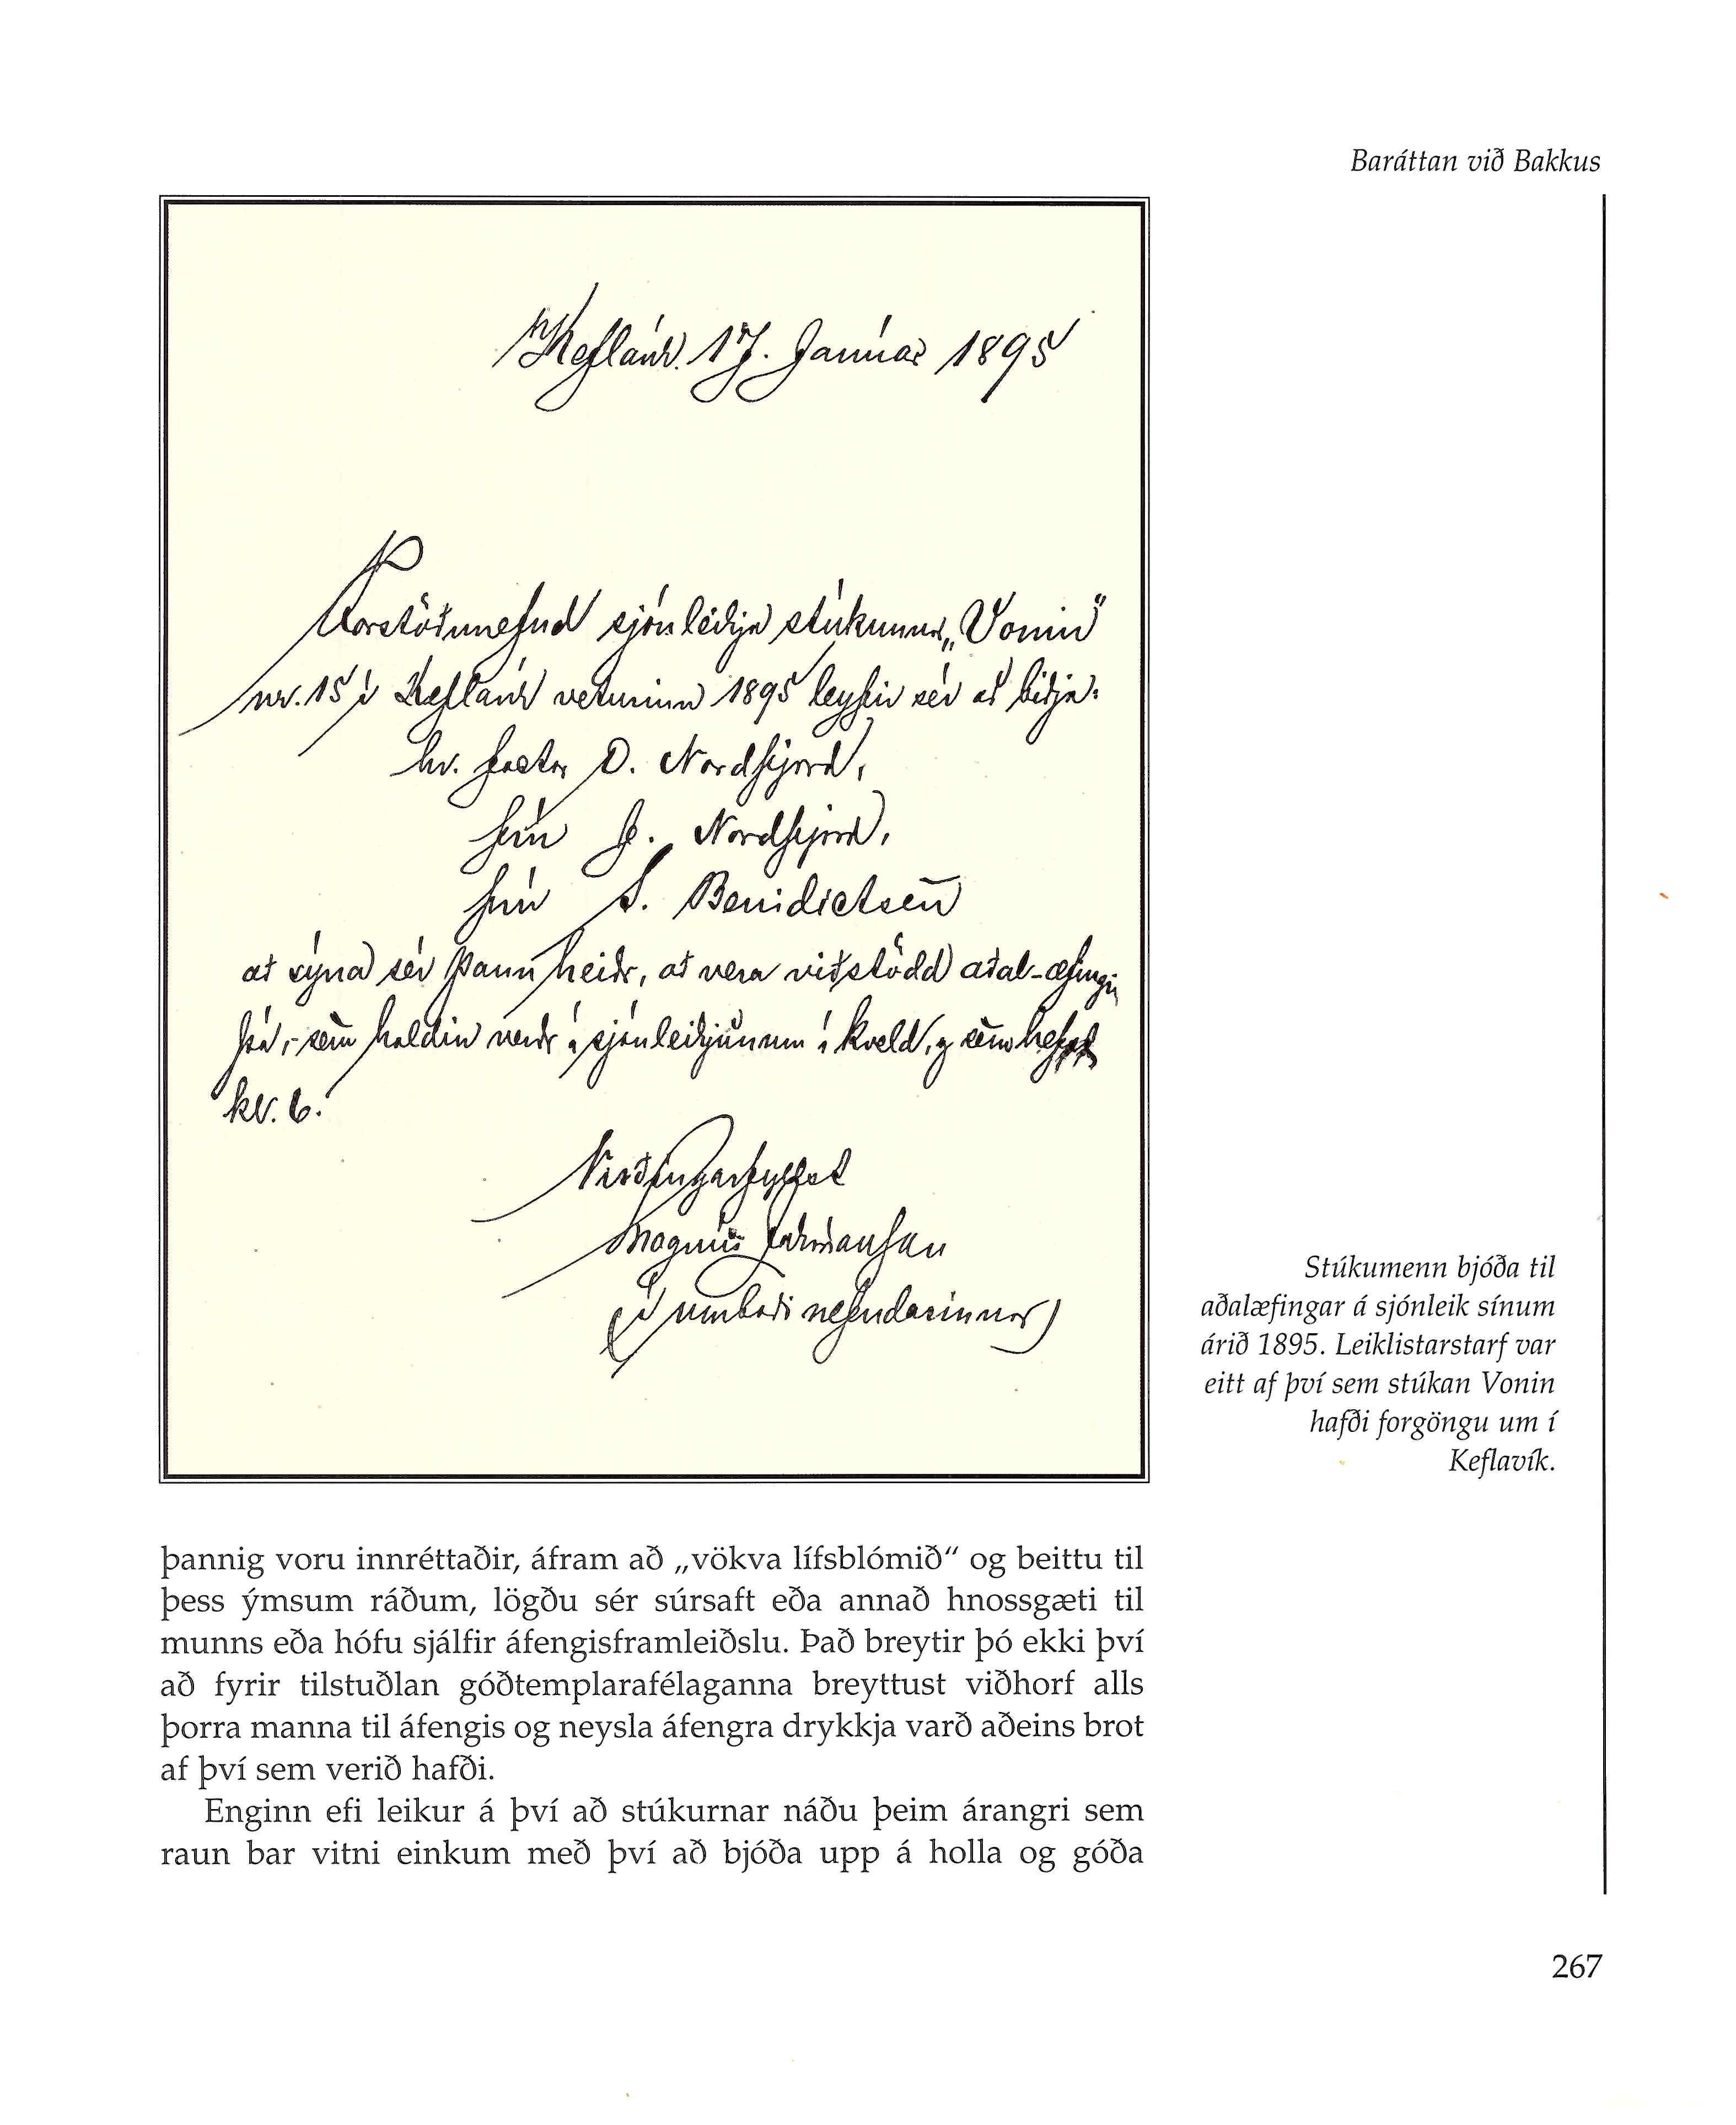 Baráttan við Bakkus
Keflavík. 17. Janúar 1895
Forstöðunefnd sjónleikja stúkunnar „Vonin"
nr. 15 í Keflavík veturinn 1895 leyfir sér að biðja:
hr. factor O. Nordfjord,
frú J. Nordfjord,
frú S. Benidictsen
að sýna sér þann heiðr, að vera viðstödd aðal-æfingu
þá, sem haldin verðr á sjónleikjunum í kveld, og sem hefst
kl. 6.
Virðingarfyllst
Magnús
(í umboði nefndarinnar)
Stúkumenn bjóða til
aðalæfingar á sjónleik sínum
árið 1895. Leiklistarstarf var
eitt af því sem stúkan Vonin
hafði forgöngu um í
Keflavík.
þannig voru innréttaðir, áfram að „vökva lífsblómið" og beittu til
þess ýmsum ráðum, lögðu sér súrsaft eða annað hnossgæti til
munns eða hófu sjálfir áfengisframleiðslu. Það breytir þó ekki því
að fyrir tilstuðlan góðtemplarafélaganna breyttust viðhorf alls
þorra manna til áfengis og neysla áfengra drykkja varð aðeins brot
af því sem verið hafði.
Enginn efi leikur á því að stúkurnar náðu þeim árangri sem
raun bar vitni einkum með því að bjóða upp á holla og góða
267